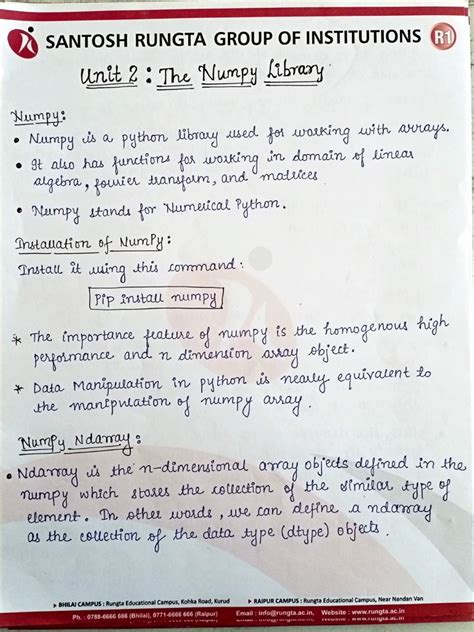 SANTOSH RUNGTA GROUP OF INSTITUTIONS R1
Unit 2 : The Numpy Library
Numpy:
• Numpy is a python library used for working with arrays.
• It also has functions for working in domain of linear
algebra, fourier transform, and matrices
• Numpy stands for Numerical Python.
Installation of NumPy:
Install it using this command:
Pip install numpy
* The importance feature of numpy is the homogenous high
performance and n dimension array object.
* Data Manipulation in python is nearly equivalent to
the manipulation of numpy array.
Numpy Ndarray:
• Ndarray is the n-dimensional array objects defined in the
numpy which stores the collection of the similar type of
element. In other words, we can define a ndarray
as the collection of the data type (dtype) objects.
▸ BHILAI CAMPUS : Rungta Educational Campus, Kohka Road, Kurud ▸ RAIPUR CAMPUS : Rungta Educational Campus, Near Nandan Van
Ph.: 0788-6666 666 (Bhilai), 0771-6666 666 (Raipur) Email : info@rungta.ac.in, Website : www.rungta.ac.in